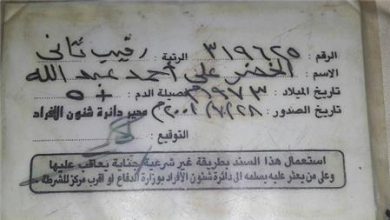 الرقم: ٣١٩٦٢٥ الرتبة: رقيب ثاني
الاسم: الخضر علي أحمد عبد الله
تاريخ الميلاد: ١٩٧٣م فصيلة الدم: +O
تاريخ الصدور: ٢٠٠١/٧/٢٨م مدير دائرة شئون الأفراد
التوقيع:
استعمال هذا السند بطريقة غير شرعية جناية يعاقب عليها
وعلى من يعثر عليه يسلمه الى دائرة شئون الأفراد بوزارة الدفاع او اقرب مركز للشرطة